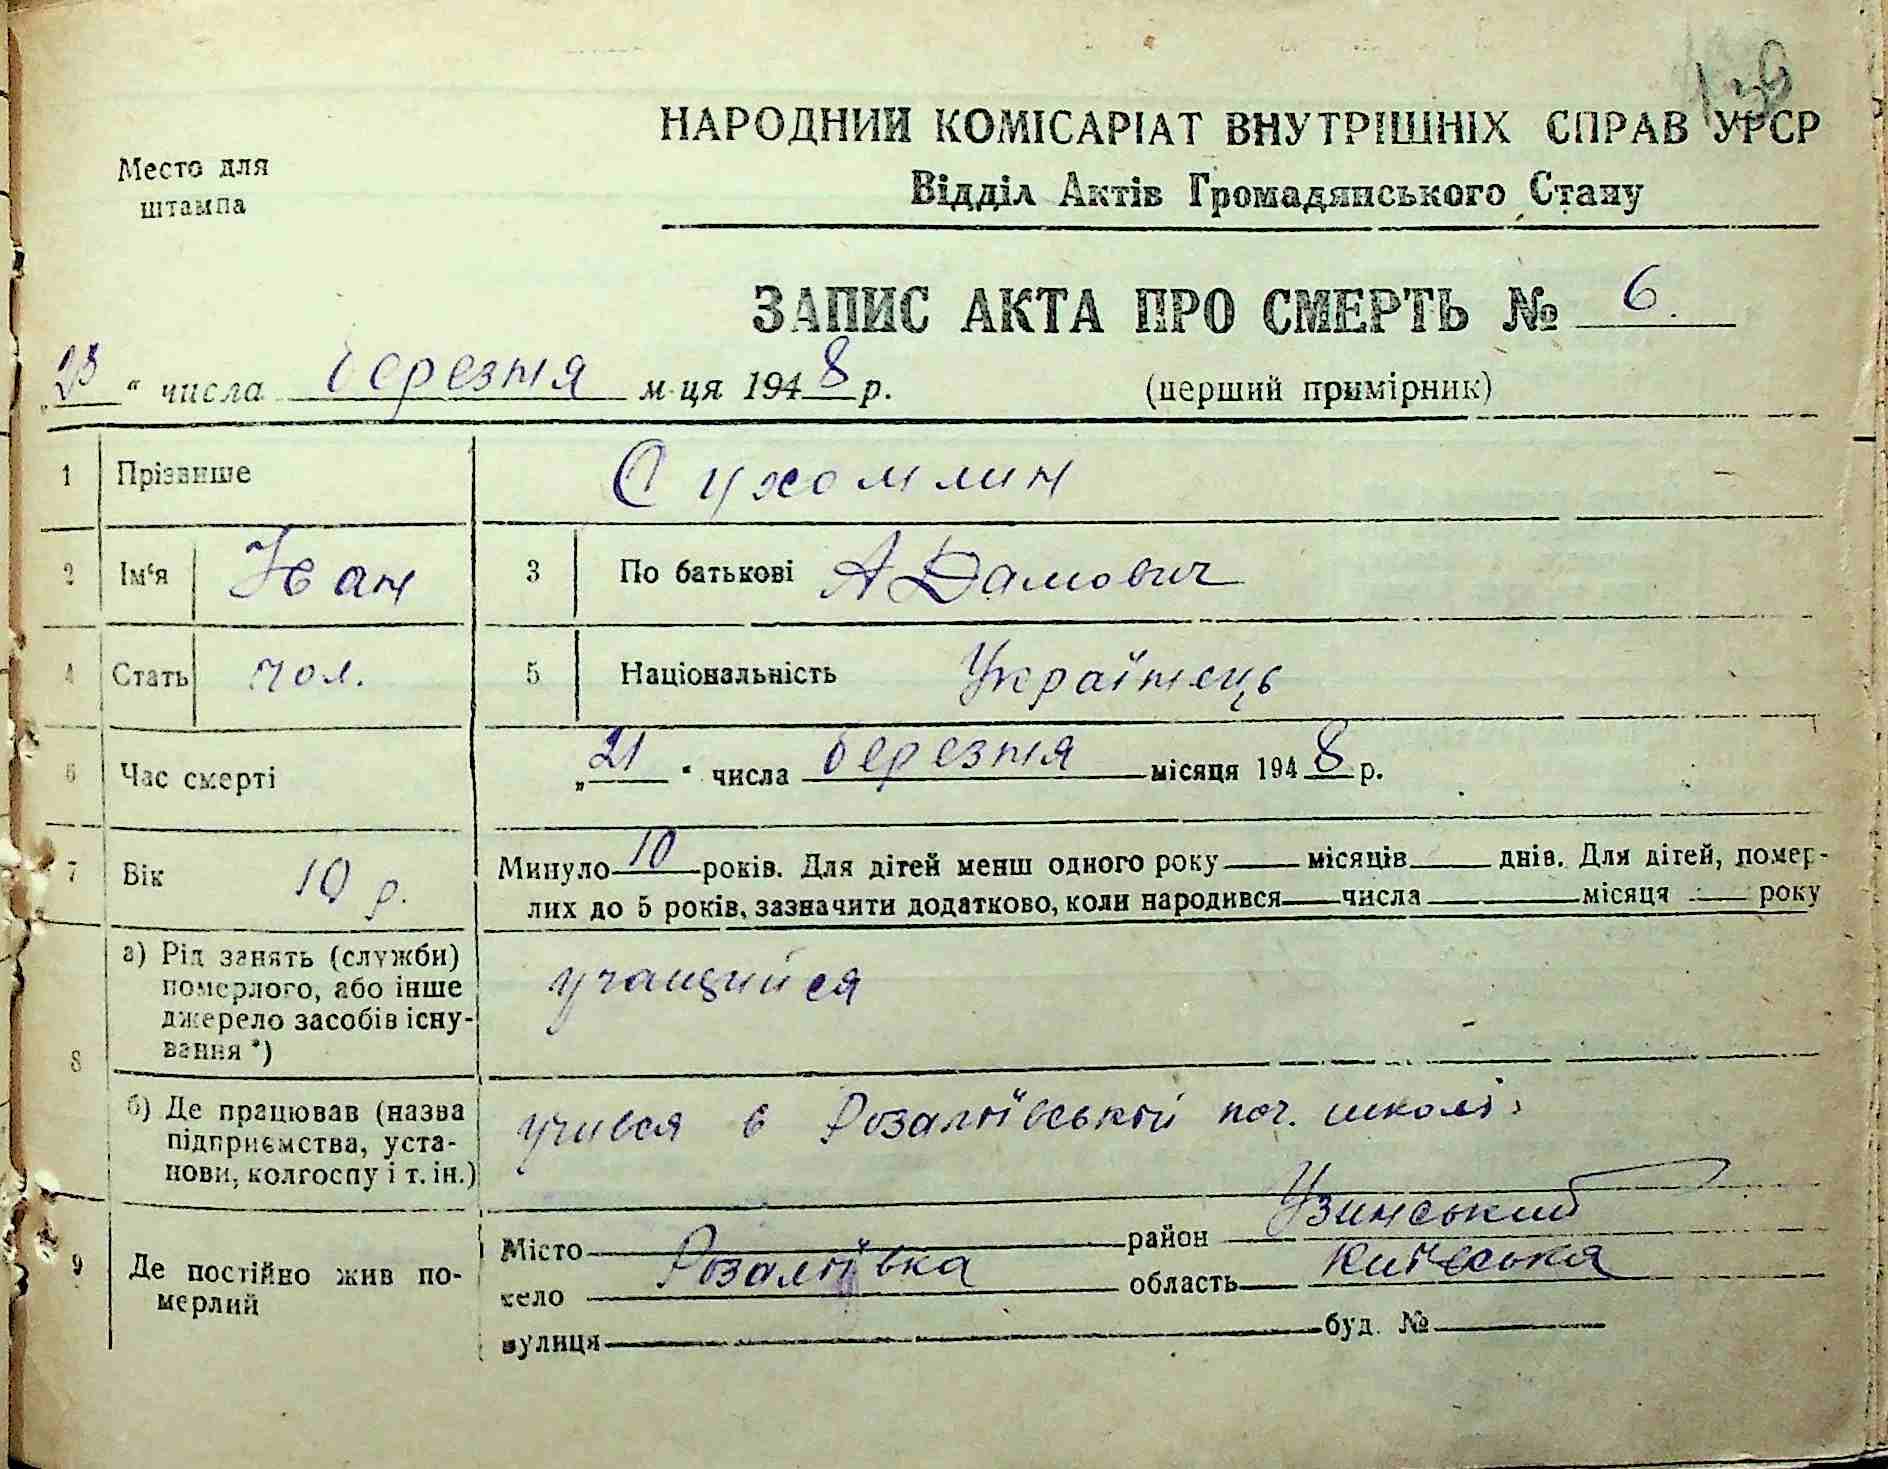 130
НАРОДНИЙ КОМІСАРІАТ ВНУТРІШНІХ СПРАВ УРСР
Место для
штампа
Відділ Актів Громадянського Стану
ЗАПИС АКТА ПРО СМЕРТЬ № 6.
„23“ числа березня м-ця 1948 р.
(перший примірник)
1 Прізвище Сухомлин
2 Ім‘я Іван 3 По батькові Адамович
4 Стать чол. 5 Національність Українець
6 Час смерті „21“ числа березня місяця 1948 р.
7 Вік 10 р. Минуло 10 років. Для дітей менш одного року — місяців — днів. Для дітей, помер-
лих до 5 років, зазначити додатково, коли народився — числа — місяця — року
8 а) Рід занять (служби)
померлого, або інше
джерело засобів існу-
вання *)
учащийся
б) Де працював (назва
підприємства, уста-
нови, колгоспу і т. ін.)
учився в Розаліївській поч. школі
9 Де постійно жив по-
мерлий
Місто — район Узинський
село Розаліївка область Київська
вулиця — буд. № —